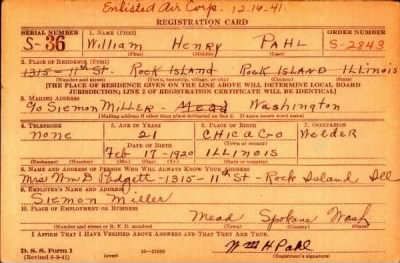 Enlisted Air Corp. 12-16-41.
REGISTRATION CARD
SERIAL NUMBER 1. NAME (Print) ORDER NUMBER
S-36 William Henry PAHL S-2843
2. PLACE OF RESIDENCE (Print)
1315-11th St- Rock Island Rock Island Illinois
[THE PLACE OF RESIDENCE GIVEN ON THE LINE ABOVE WILL DETERMINE LOCAL BOARD
JURISDICTION; LINE 2 OF REGISTRATION CERTIFICATE WILL BE IDENTICAL]
3. MAILING ADDRESS
c/o Siemon Miller - Mead Washington
[Mailing address if other than place indicated on line 2. If same insert word same]
4. TELEPHONE 5. AGE IN YEARS 6. PLACE OF BIRTH 7. OCCUPATION
None 21 CHICAGO Welder
DATE OF BIRTH
Feb-17-1920 ILLINOIS
(Exchange) (Number) (Mo.) (Day) (Yr.) (State or country)
8. NAME AND ADDRESS OF PERSON WHO WILL ALWAYS KNOW YOUR ADDRESS
Mrs Wm D Padgett-1315-11th St-Rock Island Ill
9. EMPLOYER'S NAME AND ADDRESS
Siemon Miller
10. PLACE OF EMPLOYMENT OR BUSINESS
Mead Spokane Wash
(Number and street or R. F. D. number) (Town) (County) (State)
I AFFIRM THAT I HAVE VERIFIED ABOVE ANSWERS AND THAT THEY ARE TRUE.
Wm H Pahl
D. S. S. Form 1
(Revised 6-9-41) (over) 16-21630 (Registrant's signature)